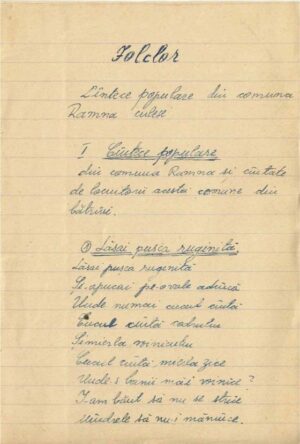 Folclor
Cîntece populare din comuna
Ramna culese
I Cîntece populare
din comuna Ramna si cîntate
de locuitorii acestei comune din
bătrîni.
① Lăsai pusca ruginită
Lăsai pusca ruginită
Si apucai pe-o vale adîncă
Unde numai cucul cîntă
Cucul cîntă codrului
Si mierla
Cucul cîntă, mierla zice
Unde-s banii măi voinice?
I-am băut să nu se strice
Mîndrele să nu-i mănînce.